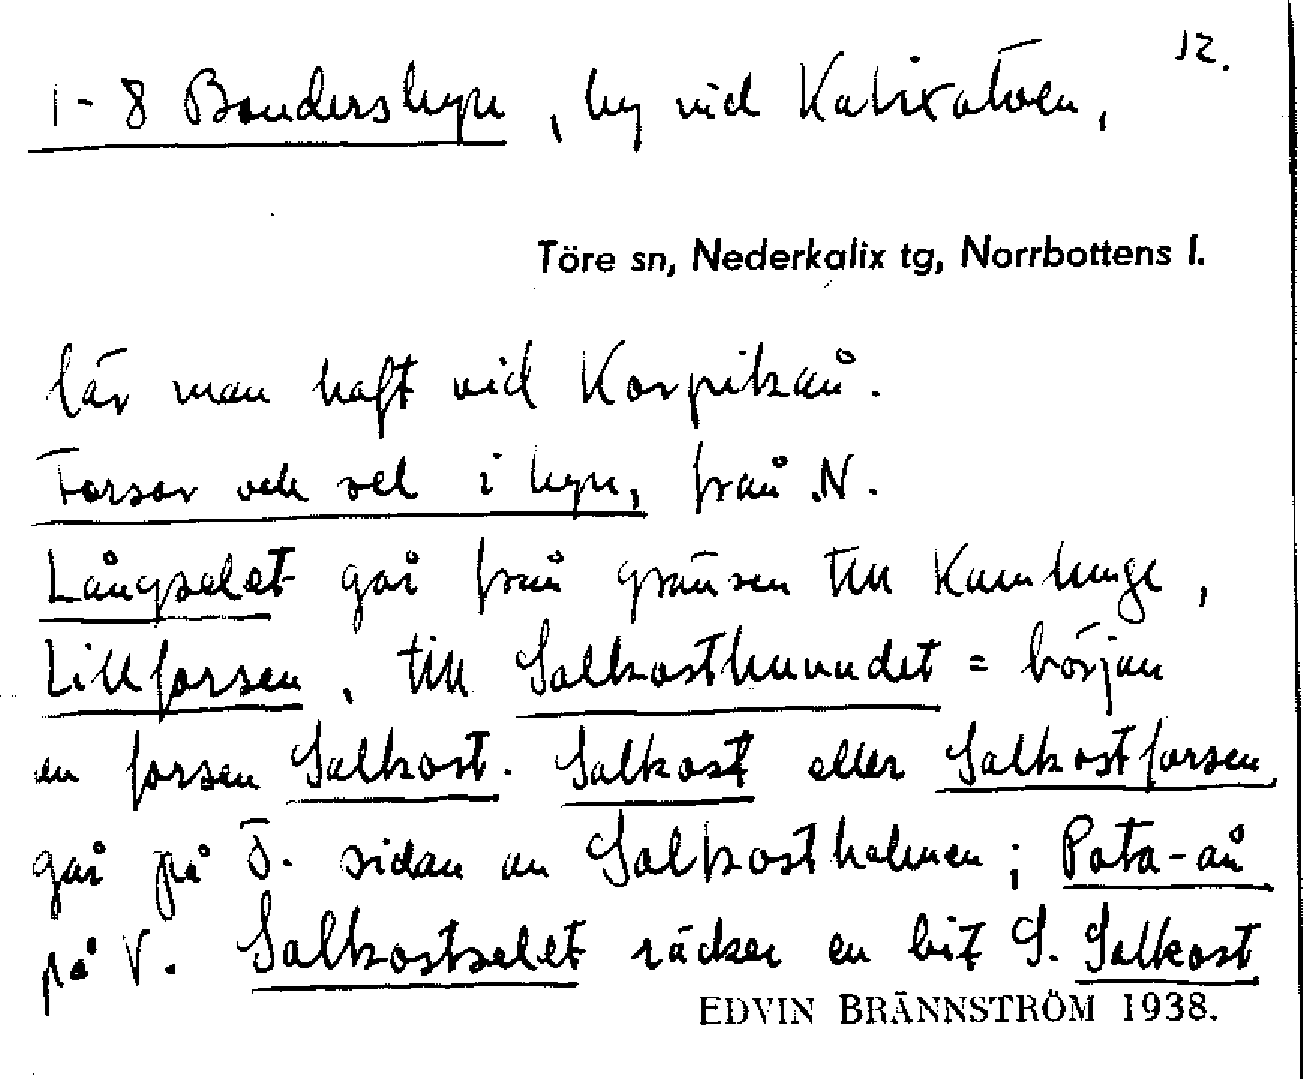 12.
1-8 Bondersbyn, by vid Kalixälven,
Töre sn, Nederkalix tg, Norrbottens l.
lär man haft vid Korpikån.
Forsar och sel i byn, från N.
Långselet går från gränsen till Kamlunge,
Lillforsen, till Salkosthuvudet = början
av forsen Salkost. Salkost eller Salkostforsen
går på Ö. sidan av Salkostholmen; Pata-ån
på V. Salkostselet räcker en bit S. Salkost
EDVIN BRÄNNSTRÖM 1938.